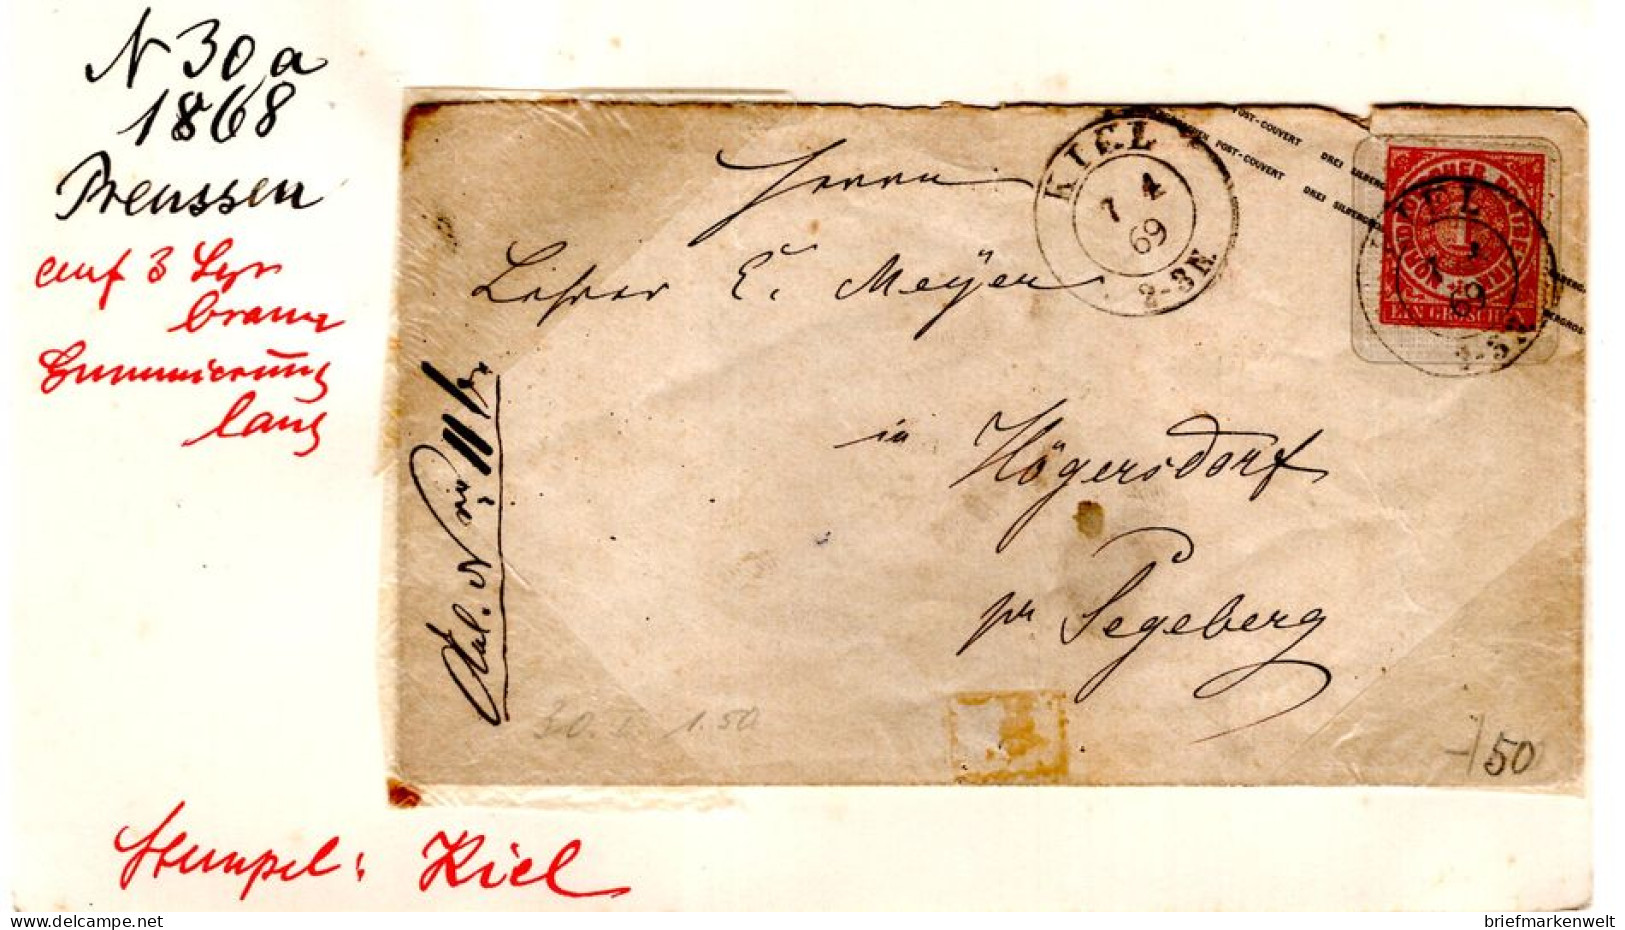 N 30 a
1868
Preussen
auf 3 Sgr
braune
Gummierung
lang
Herrn
Lehrer E. Meyer
in Högersdorf
pr Segeberg
KIEL
7 4
69
2-3N.
POST-COUVERT DREI SILBERG
POST-COUVERT DREI SILBERGRO
BERGROS
EIN GROSCH
1
KIEL
69
30. I. 1.50
-/50
Stempel: Kiel
delcampe.net
briefmarkenwelt